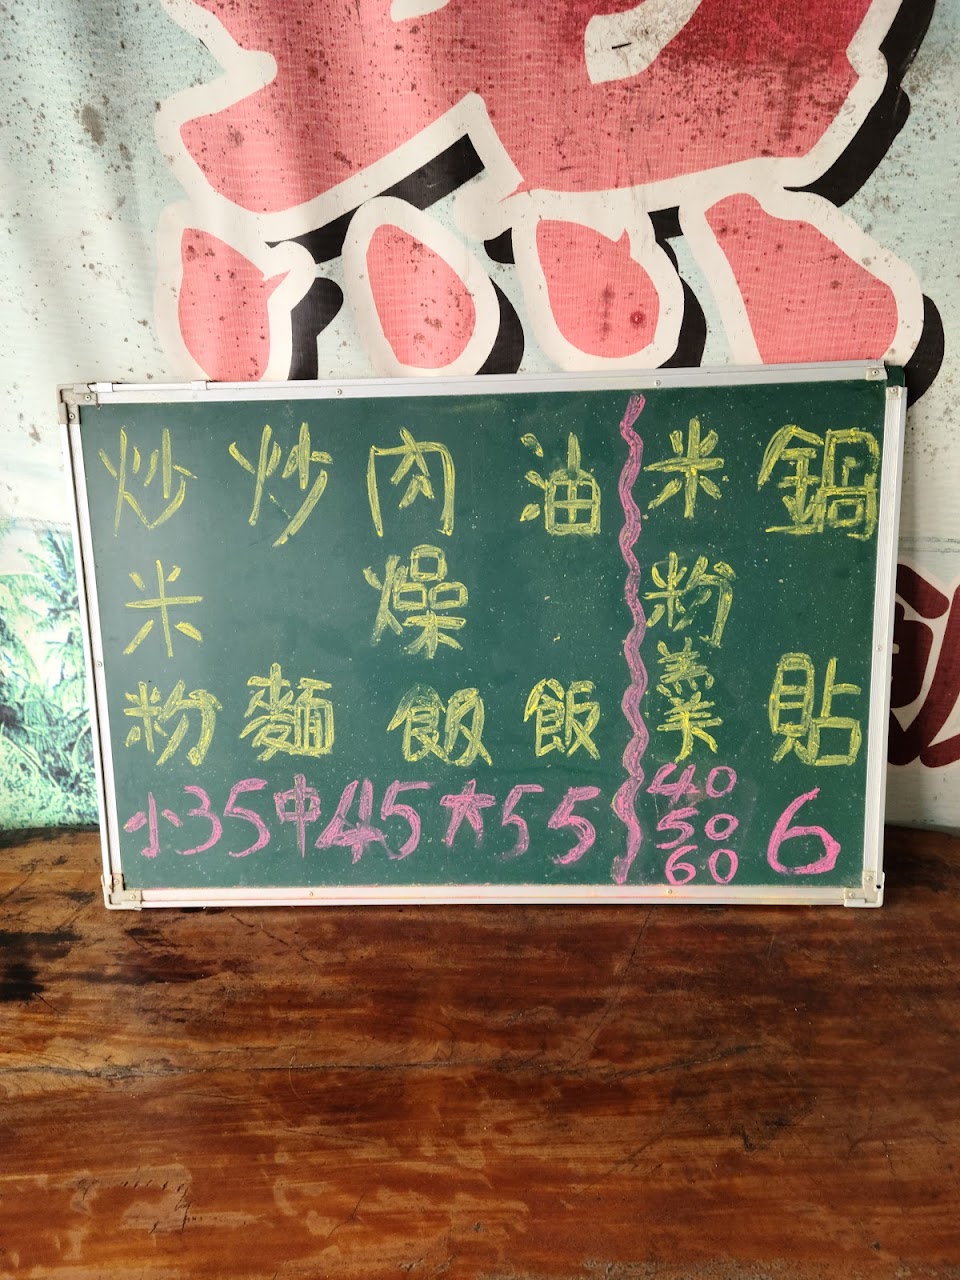 炒米粉
炒麵
肉燥飯
油飯
小35中45大55
米粉羹
40
50
60
鍋貼
6